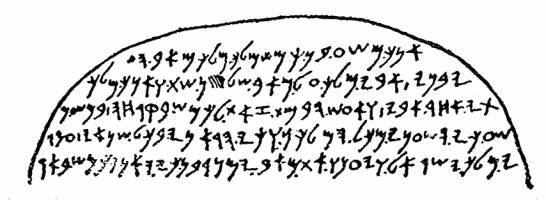 𐤀𐤍𐤊.𐤌𐤔𐤏.𐤁𐤍.𐤊𐤌𐤔𐤌𐤋𐤊.𐤌𐤋𐤊.𐤌𐤀𐤁.𐤄
𐤉𐤁𐤍𐤉.𐤀𐤁𐤉.𐤌𐤋𐤊.𐤏𐤋.𐤌𐤀𐤁.𐤔𐤋𐤔𐤍.𐤔𐤕.𐤅𐤀𐤍𐤊.𐤌𐤋𐤊
𐤕𐤉.𐤀𐤇𐤓.𐤀𐤁𐤉.𐤅𐤀𐤏𐤔.𐤄𐤁𐤌𐤕.𐤆𐤀𐤕.𐤋𐤊𐤌𐤔.𐤁𐤒𐤓𐤇𐤄
𐤔𐤏.𐤊𐤉.𐤄𐤔𐤏𐤍𐤉.𐤌𐤊𐤋.𐤄𐤌𐤋𐤊𐤍.𐤅𐤊𐤉.𐤄𐤓𐤀𐤍𐤉.𐤁𐤊𐤋.𐤔𐤍𐤀𐤉.𐤏𐤌𐤓
𐤉.𐤌𐤋𐤊.𐤉𐤔𐤓𐤀𐤋.𐤅𐤉𐤏𐤍𐤅.𐤀𐤕.𐤌𐤀𐤁.𐤉𐤌𐤍.𐤓𐤁𐤍.𐤊𐤉.𐤉𐤀𐤍𐤐.𐤊𐤌𐤔.𐤁𐤀𐤓